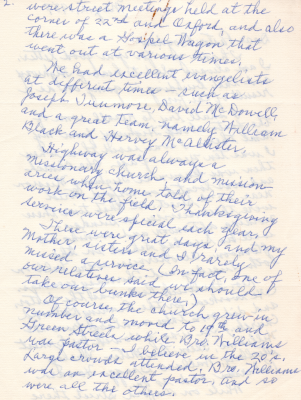 2.
were street meetings held at the
corner of 22nd and Oxford, and also
there was a Gospel Wagon that
went out at various times.
We had excellent evangelists
at different times - such as
Joseph Dunmore, David McDowell,
and a great team, namely William
Black and Hervey McAlister.
Highway was always a
missionary church, and mission-
aries when home told of their
work on the field. Thanksgiving
Service were special each year.
These were great days and my
Mother, sisters and I rarely
missed a service. (In fact, one of
our relatives said we should
take our bunks there.)
Of course, the church grew in
number and moved to 19th and
Green Streets while Bro. Williams
was pastor - I believe in the 20's.
Large crowds attended. Bro. Williams
was an excellent pastor, and so
were all the others.